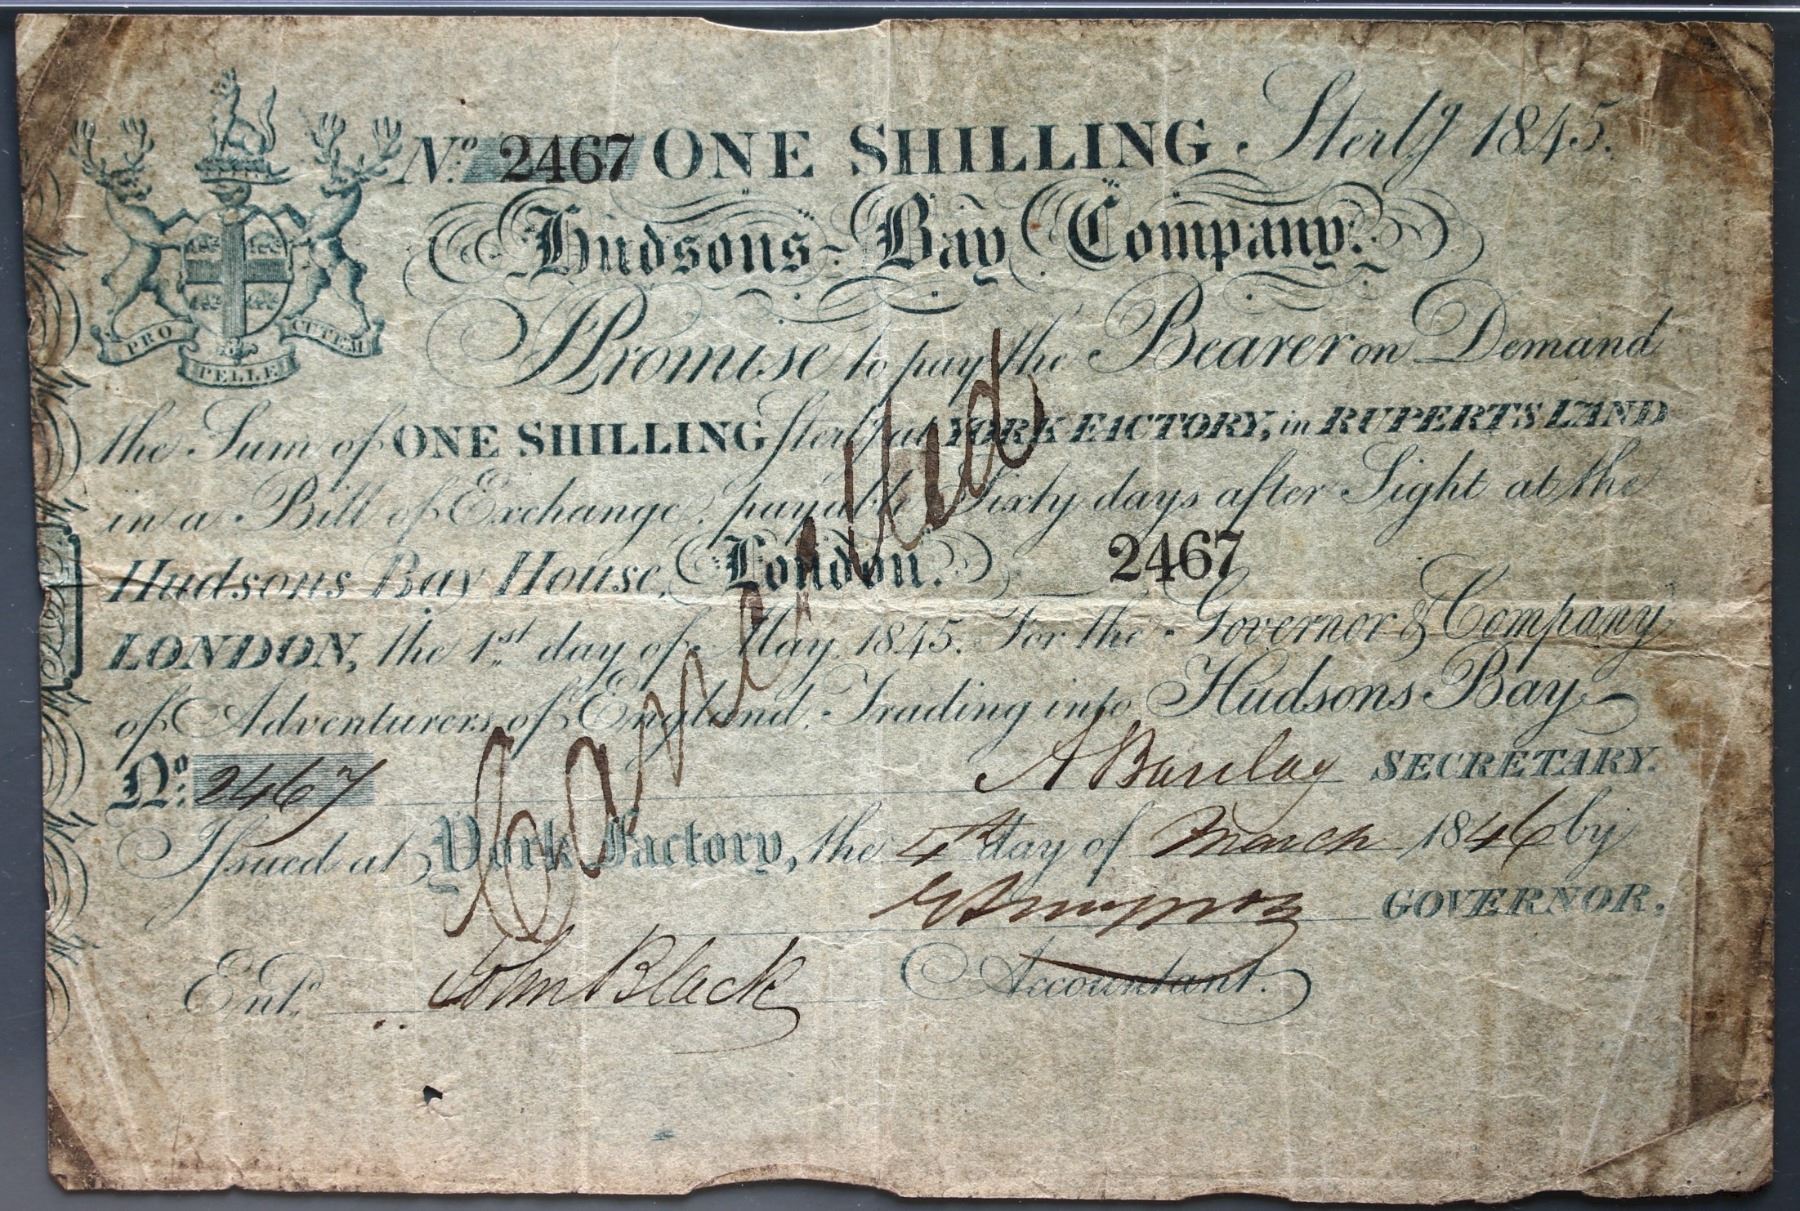 No. 2467 ONE SHILLING Sterlg 1845.
Hudsons-Bay Company.
PRO PELLE CUTEM
Promise to pay the Bearer on Demand
the Sum of ONE SHILLING Sterlg at YORK FACTORY, in RUPERTS LAND
in a Bill of Exchange, payable Sixty days after Sight at the
Hudsons Bay House, London. 2467
LONDON, the 1st. day of May 1845. For the Governor & Company
of Adventurers of England, Trading into Hudsons Bay
No. 2467 A Barclay SECRETARY.
Issued at York Factory, the 4th day of March 1846 by
G Simpson GOVERNOR,
Entd. John Black Accountant.
Cancelled